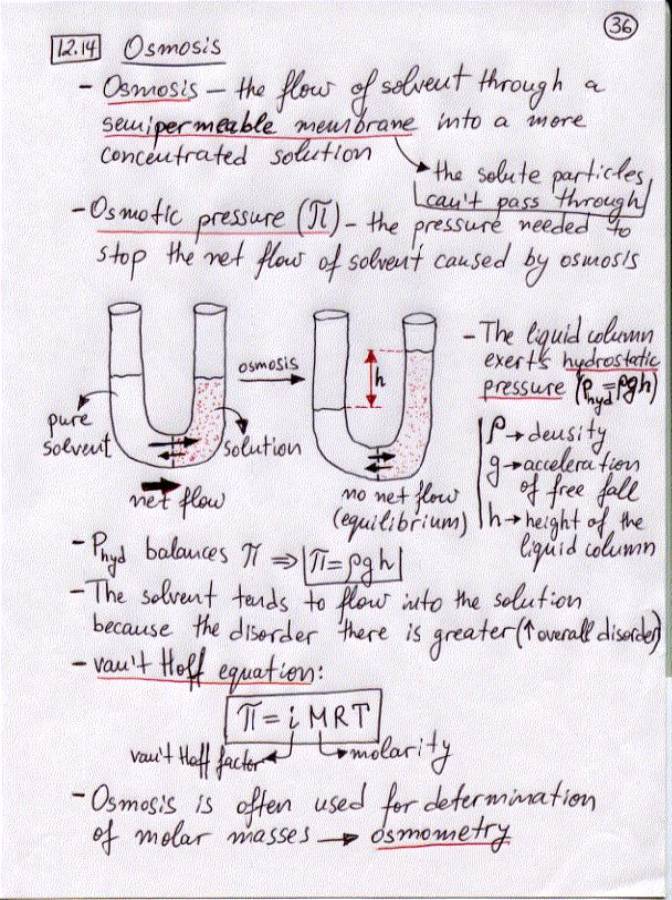 36
12.14 Osmosis
- Osmosis – the flow of solvent through a
semipermeable membrane into a more
concentrated solution
the solute particles
can't pass through
- Osmotic pressure (π) – the pressure needed to
stop the net flow of solvent caused by osmosis
pure
solvent
solution
net flow
osmosis
h
no net flow
(equilibrium)
- The liquid column
exerts hydrostatic
pressure (Phyd = ρgh)
ρ → density
g → acceleration
of free fall
h → height of the
liquid column
- Phyd balances π ⇒ π = ρgh
- The solvent tends to flow into the solution
because the disorder there is greater (↑ overall disorder)
- van't Hoff equation:
π = i MRT
van't Hoff factor
molarity
- Osmosis is often used for determination
of molar masses → osmometry